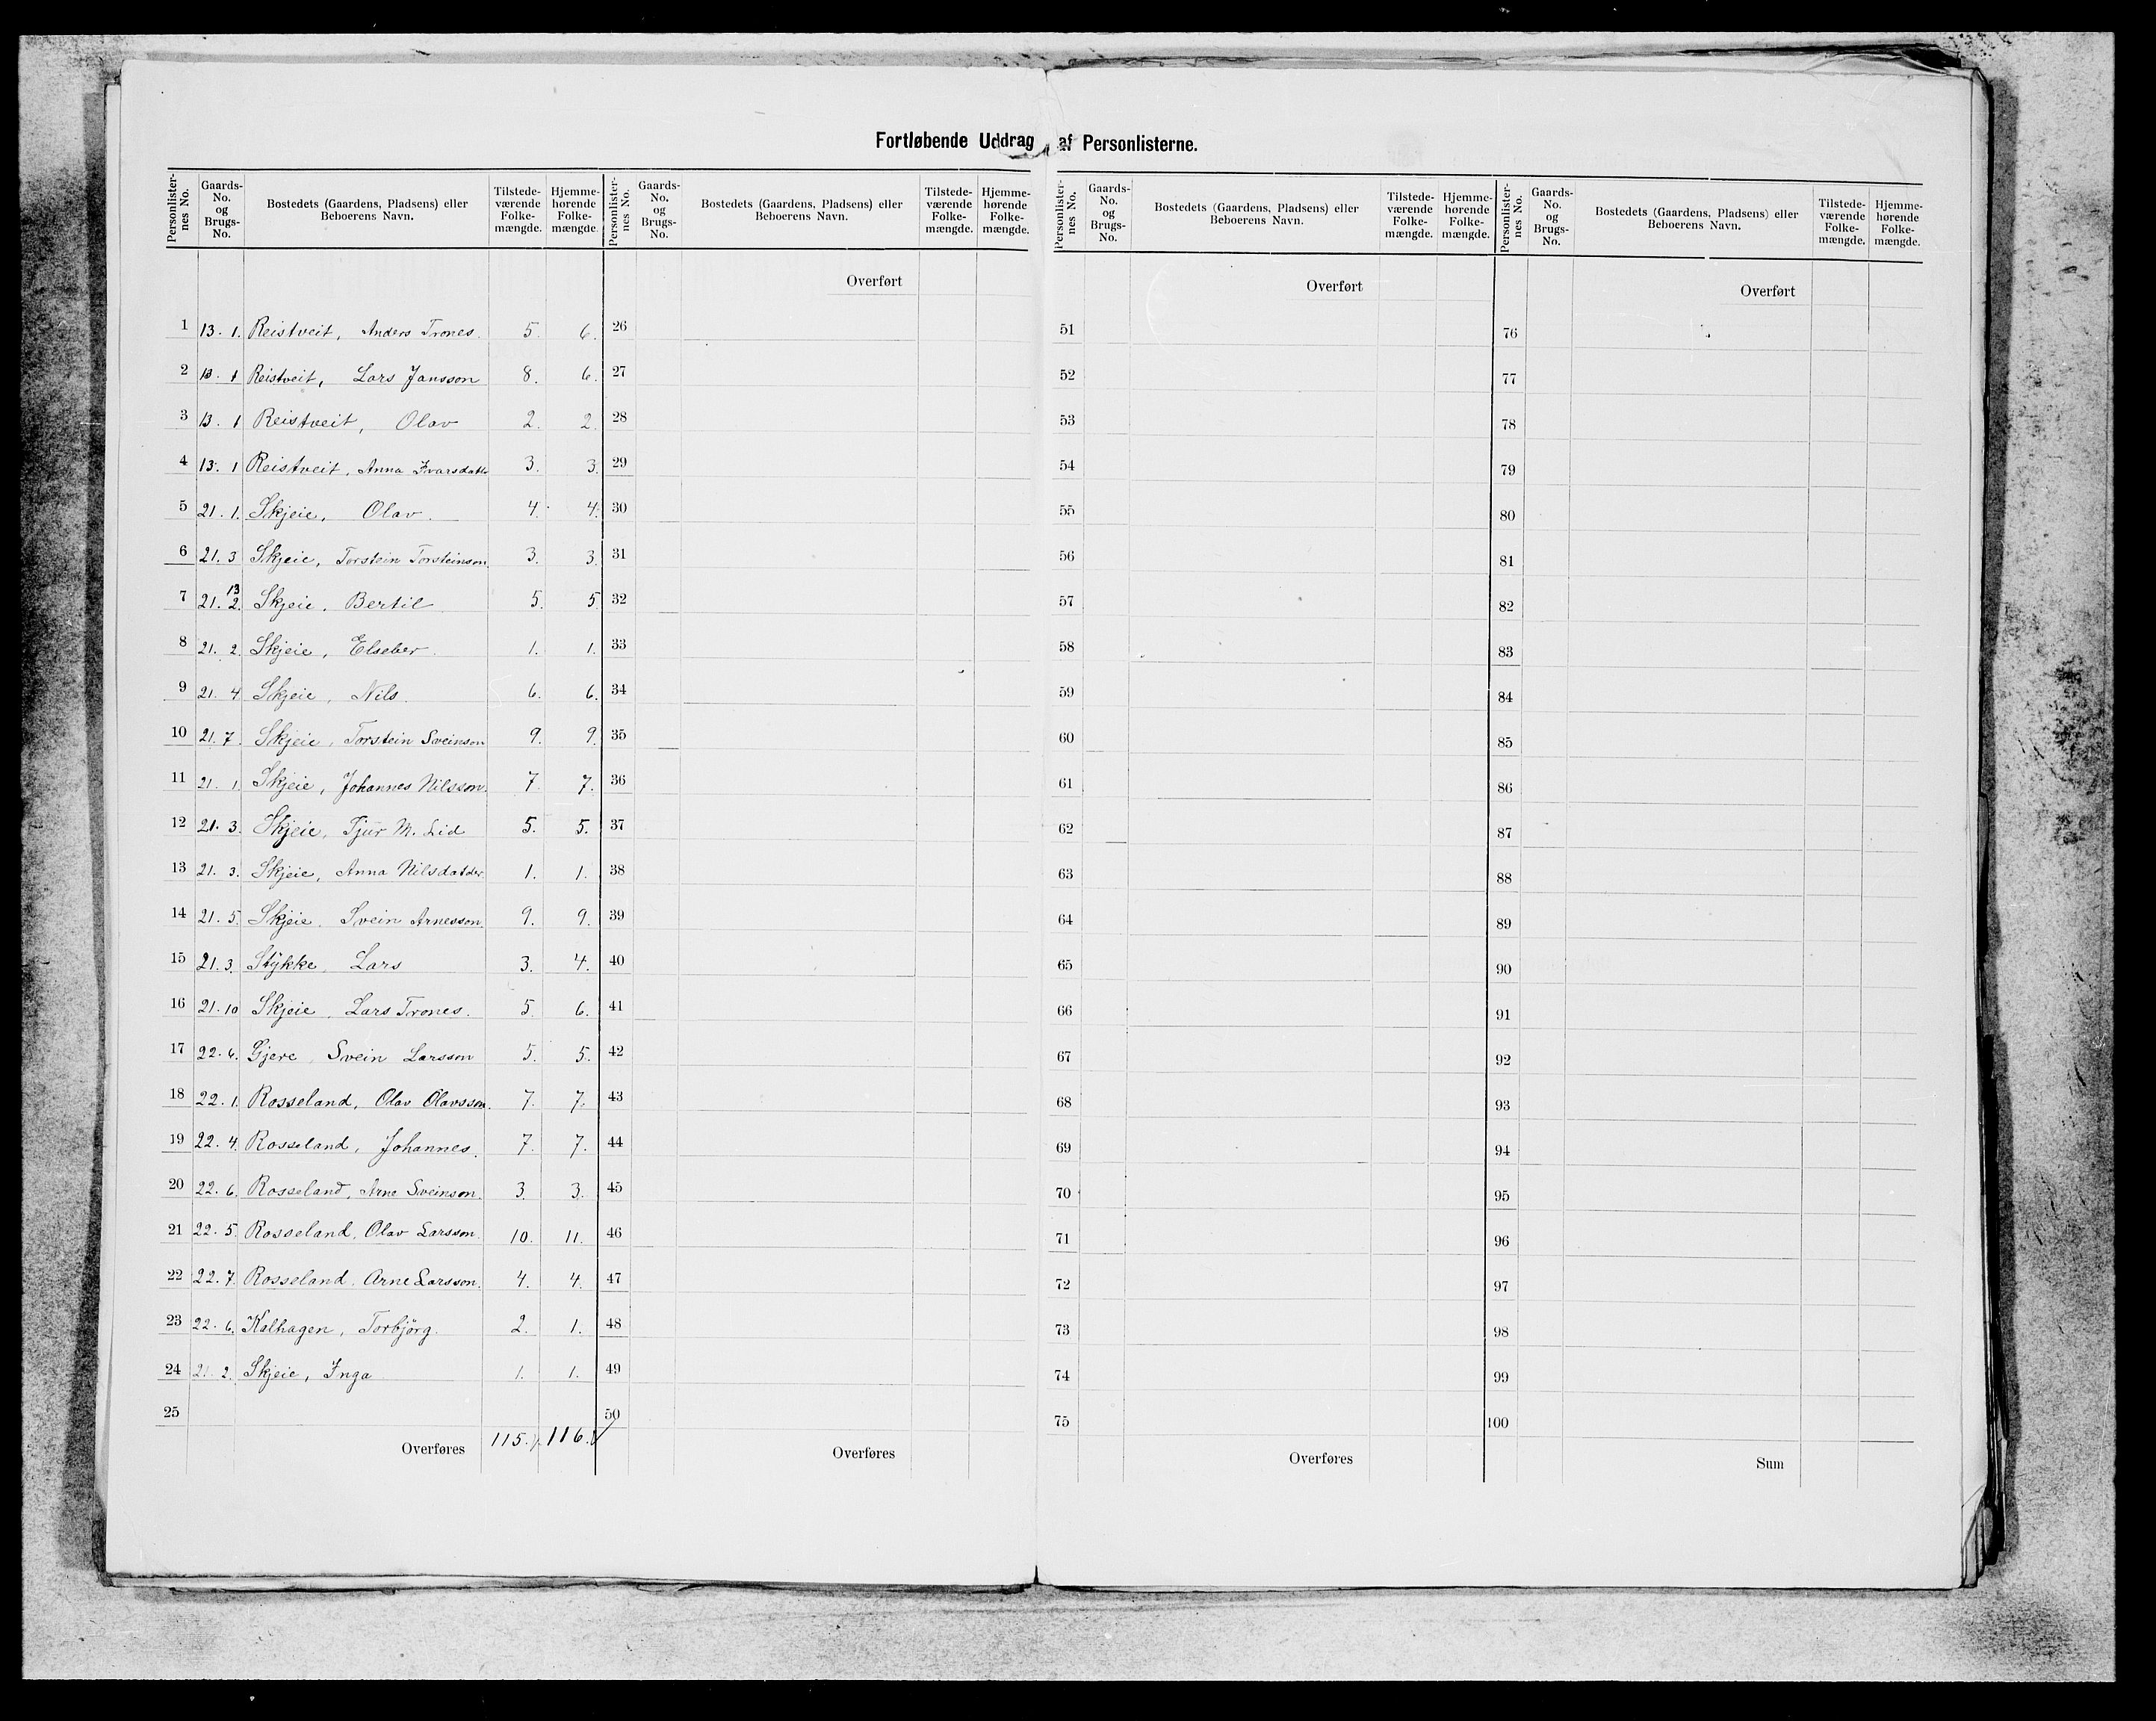 Fortløbende Uddrag af Personlisterne.
Personlister-nes No. Gaards-No. og Brugs-No. Bostedets (Gaardens, Pladsens) eller Beboerens Navn. Tilstede-værende Folke-mængde. Hjemme-hørende Folke-mængde.
Personlister-nes No. Gaards-No. og Brugs-No. Bostedets (Gaardens, Pladsens) eller Beboerens Navn. Tilstede-værende Folke-mængde. Hjemme-hørende Folke-mængde.
Personlister-nes No. Gaards-No. og Brugs-No. Bostedets (Gaardens, Pladsens) eller Beboerens Navn. Tilstede-værende Folke-mængde. Hjemme-hørende Folke-mængde.
Personlister-nes No. Gaards-No. og Brugs-No. Bostedets (Gaardens, Pladsens) eller Beboerens Navn. Tilstede-værende Folke-mængde. Hjemme-hørende Folke-mængde.
Overført Overført Overført
1 13. 1. Reistveit, Anders Trones. 5. 6. 26 51 76
2 13. 1 Reistveit, Lars Jansson 8. 6. 27 52 77
3 13. 1 Reistveit, Olav 2. 2. 28 53 78
4 13. 1 Reistveit, Anna Ivarsdatter 3. 3. 29 54 79
5 21. 1. Skjeie, Olav. 4. 4. 30 55 80
6 21. 3 Skjeie, Torstein Torsteinson. 3. 3. 31 56 81
7 21. 13 2. Skjeie, Bertil 5. 5. 32 57 82
8 21. 2. Skjeie, Elseber. 1. 1. 33 58 83
9 21. 4. Skjeie, Nils. 6. 6. 34 59 84
10 21. 7. Skjeie, Torstein Sveinson 9. 9. 35 60 85
11 21. 1. Skjeie, Johannes Nilsson. 7. 7. 36 61 86
12 21. 3. Skjeie, Tjur M. Lid 5. 5. 37 62 87
13 21. 3. Skjeie, Anna Nilsdatter. 1. 1. 38 63 88
14 21. 5. Skjeie. Svein Arnesson. 9. 9. 39 64 89
15 21. 3. Stykke, Lars 3. 4. 40 65 90
16 21. 10 Skjeie, Lars Trones. 5. 6. 41 66 91
17 22. 6. Gjere, Svein Larsson 5. 5. 42 67 92
18 22. 1. Rosseland, Olav Olavsson. 7. 7. 43 68 93
19 22. 4. Rosseland, Johannes. 7. 7. 44 69 94
20 22. 6. Rosseland, Arne Sveinson. 3. 3. 45 70 95
21 22. 5. Rosseland, Olav Larsson. 10. 11. 46 71 96
22 22. 7. Rosseland, Arne Larsson. 4. 4. 47 72 97
23 22. 6. Kalhagen, Torbjörg. 2. 1. 48 73 98
24 21. 2. Skjeie, Inga 1. 1. 49 74 99
25 50 75 100
Overføres 115. 116. Overføres Overføres Sum